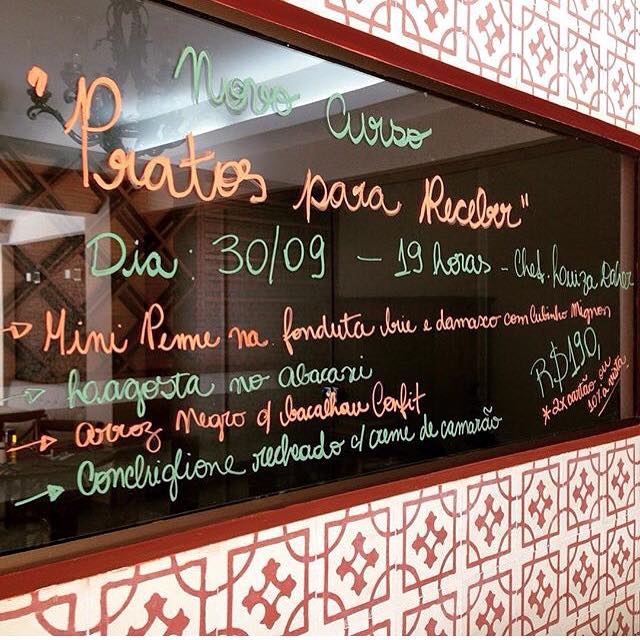 Novo Curso
"Pratos para Receber"
Dia: 30/09 - 19 horas - Chef. Louiza
→ Mini Penne na fonduta brie e damasco com Cubinho Mignon
→ Laagosta no Abacaxi
→ arroz Negro c/ bacalhau Confit
→ Conchiglione recheado c/ creme de camarão
R$190,
* 2x cartão ou
10% à vista